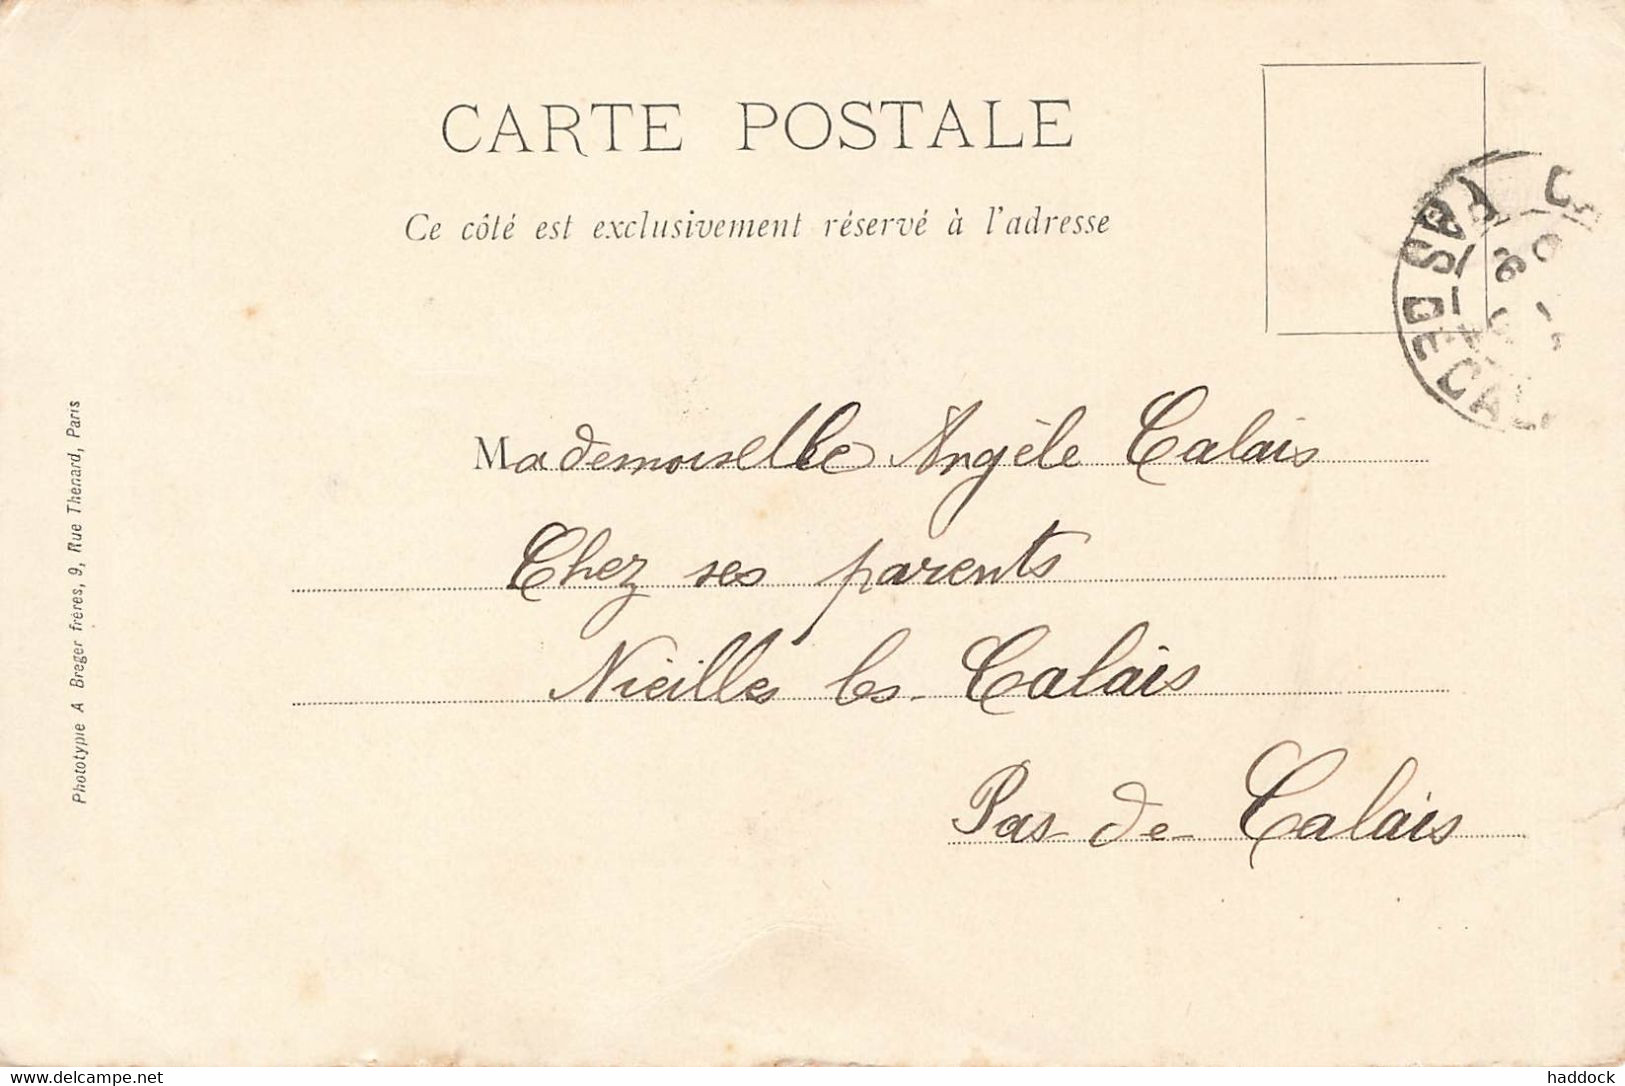 CARTE POSTALE
Ce côté est exclusivement réservé à l'adresse
PAS DE CAL
Mademoiselle Angèle Calais
Chez ses parents
Nieilles les Calais
Pas de Calais
Phototypie A Breger frères, 9, Rue Thenard, Paris
www.delcampe.net
haddock